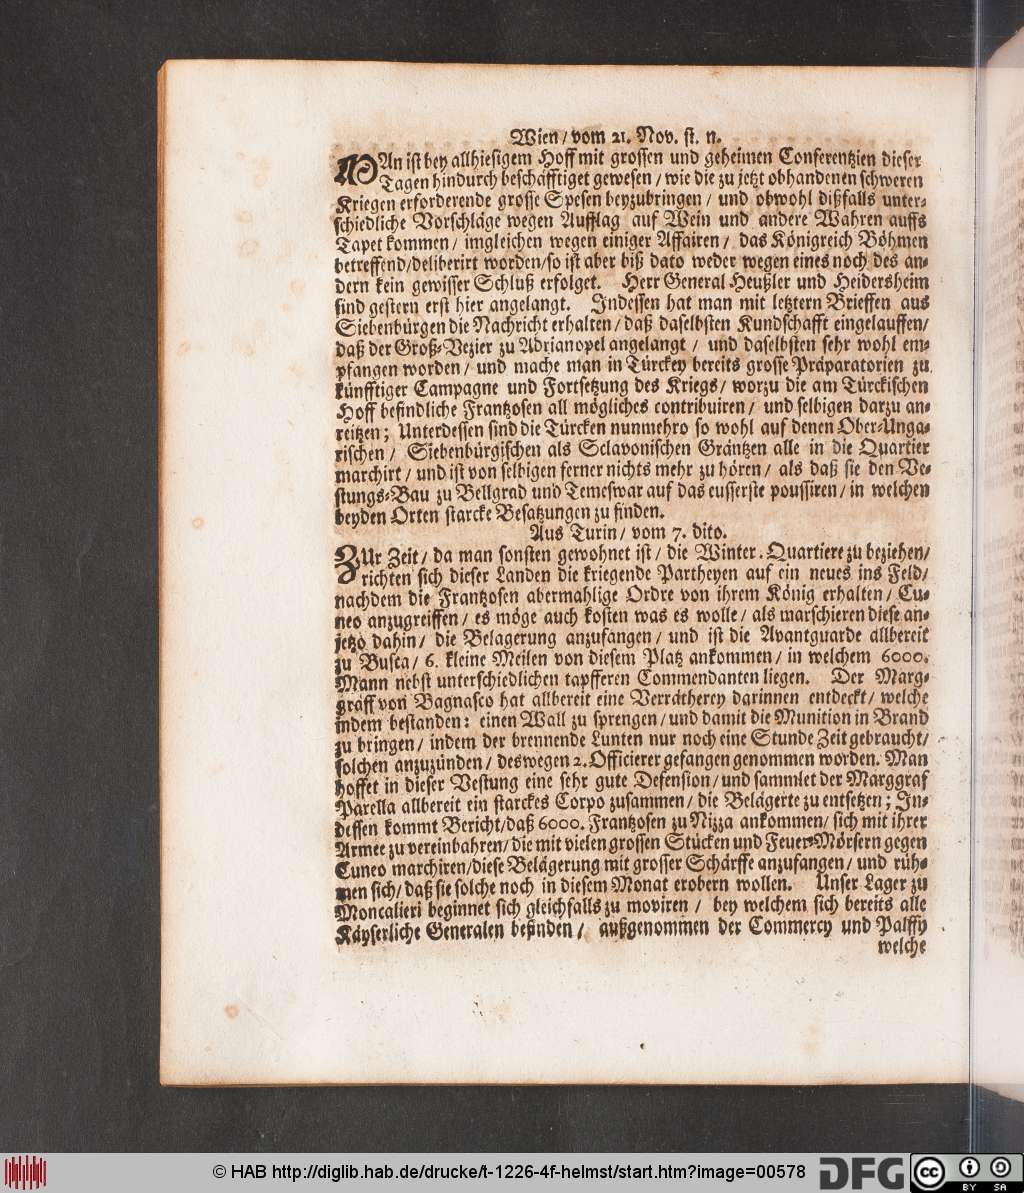 Wien / vom 21. Nov. st. n.
MAn ist bey allhiesigem Hoff mit grossen und geheimen Conferentzien dieser
Tagen hindurch beschäfftiget gewesen / wie die zu jetzt obhandenen schweren
Kriegen erforderende grosse Spesen beyzubringen / und obwohl dißfalls unter-
schiedliche Vorschläge wegen Aufflag auf Wein und andere Wahren auffs
Tapet kommen / imgleichen wegen einiger Affairen / das Königreich Böhmen
betreffend/deliberirt worden/so ist aber biß dato weder wegen eines noch des an-
dern kein gewisser Schluß erfolget. Herr General Heußler und Heidersheim
sind gestern erst hier angelangt. Indessen hat man mit letztern Brieffen aus
Siebenbürgen die Nachricht erhalten / daß daselbsten Kundschafft eingelauffen/
daß der Groß-Vezier zu Adrianopel angelangt / und daselbsten sehr wohl em-
pfangen worden / und mache man in Türckey bereits grosse Präparatorien zu
künfftiger Campagne und Fortsetzung des Kriegs / worzu die am Türckischen
Hoff befindliche Frantzosen all mögliches contribuiren / und selbigen darzu an-
reitzen; Unterdessen sind die Türcken nunmehro so wohl auf denen Ober-Unga-
rischen / Siebenbürgischen als Sclavonischen Gräntzen alle in die Quartier
marchirt / und ist von selbigen ferner nichts mehr zu hören / als daß sie den Ve-
stungs-Bau zu Bellgrad und Temeswar auf das eusserste poussiren / in welchen
beyden Orten starcke Besatzungen zu finden.
Aus Turin / vom 7. dito.
ZUr Zeit / da man sonsten gewohnet ist / die Winter-Quartiere zu beziehen/
richten sich dieser Landen die kriegende Partheyen auf ein neues ins Feld/
nachdem die Frantzosen abermahlige Ordre von ihrem König erhalten / Cu-
neo anzugreiffen / es möge auch kosten was es wolle / als marschieren diese an-
jetzo dahin / die Belagerung anzufangen / und ist die Avantguarde allbereit
zu Busca / 6. kleine Meilen von diesem Platz ankommen / in welchem 6000.
Mann nebst unterschiedlichen tapfferen Commendanten liegen. Der Marg-
gräff von Bagnasco hat allbereit eine Verrätherey darinnen entdeckt / welche
indem bestanden: einen Wall zu sprengen / und damit die Munition in Brand
zu bringen / indem der brennende Lunten nur noch eine Stunde Zeit gebraucht/
solchen anzuzünden / deswegen 2. Officierer gefangen genommen worden. Man
hoffet in dieser Vestung eine sehr gute Defension / und sammlet der Marggraf
Parella allbereit ein starckes Corpo zusammen / die Belägerte zu entsetzen; In-
dessen kommt Bericht/daß 6000. Frantzosen zu Nizza ankommen / sich mit ihrer
Armee zu vereinbahren / die mit vielen grossen Stücken und Feuer-Mörsern gegen
Cuneo marchiren/diese Belägerung mit grosser Schärffe anzufangen / und rüh-
men sich / daß sie solche noch in diesem Monat erobern wollen. Unser Lager zu
Moncalieri beginnet sich gleichfalls zu moviren / bey welchem sich bereits alle
Käyserliche Generalen befinden / außgenommen der Commercy und Palffy
welche
© HAB http://diglib.hab.de/drucke/t-1226-4f-helmst/start.htm?image=00578
DFG
cc
BY SA